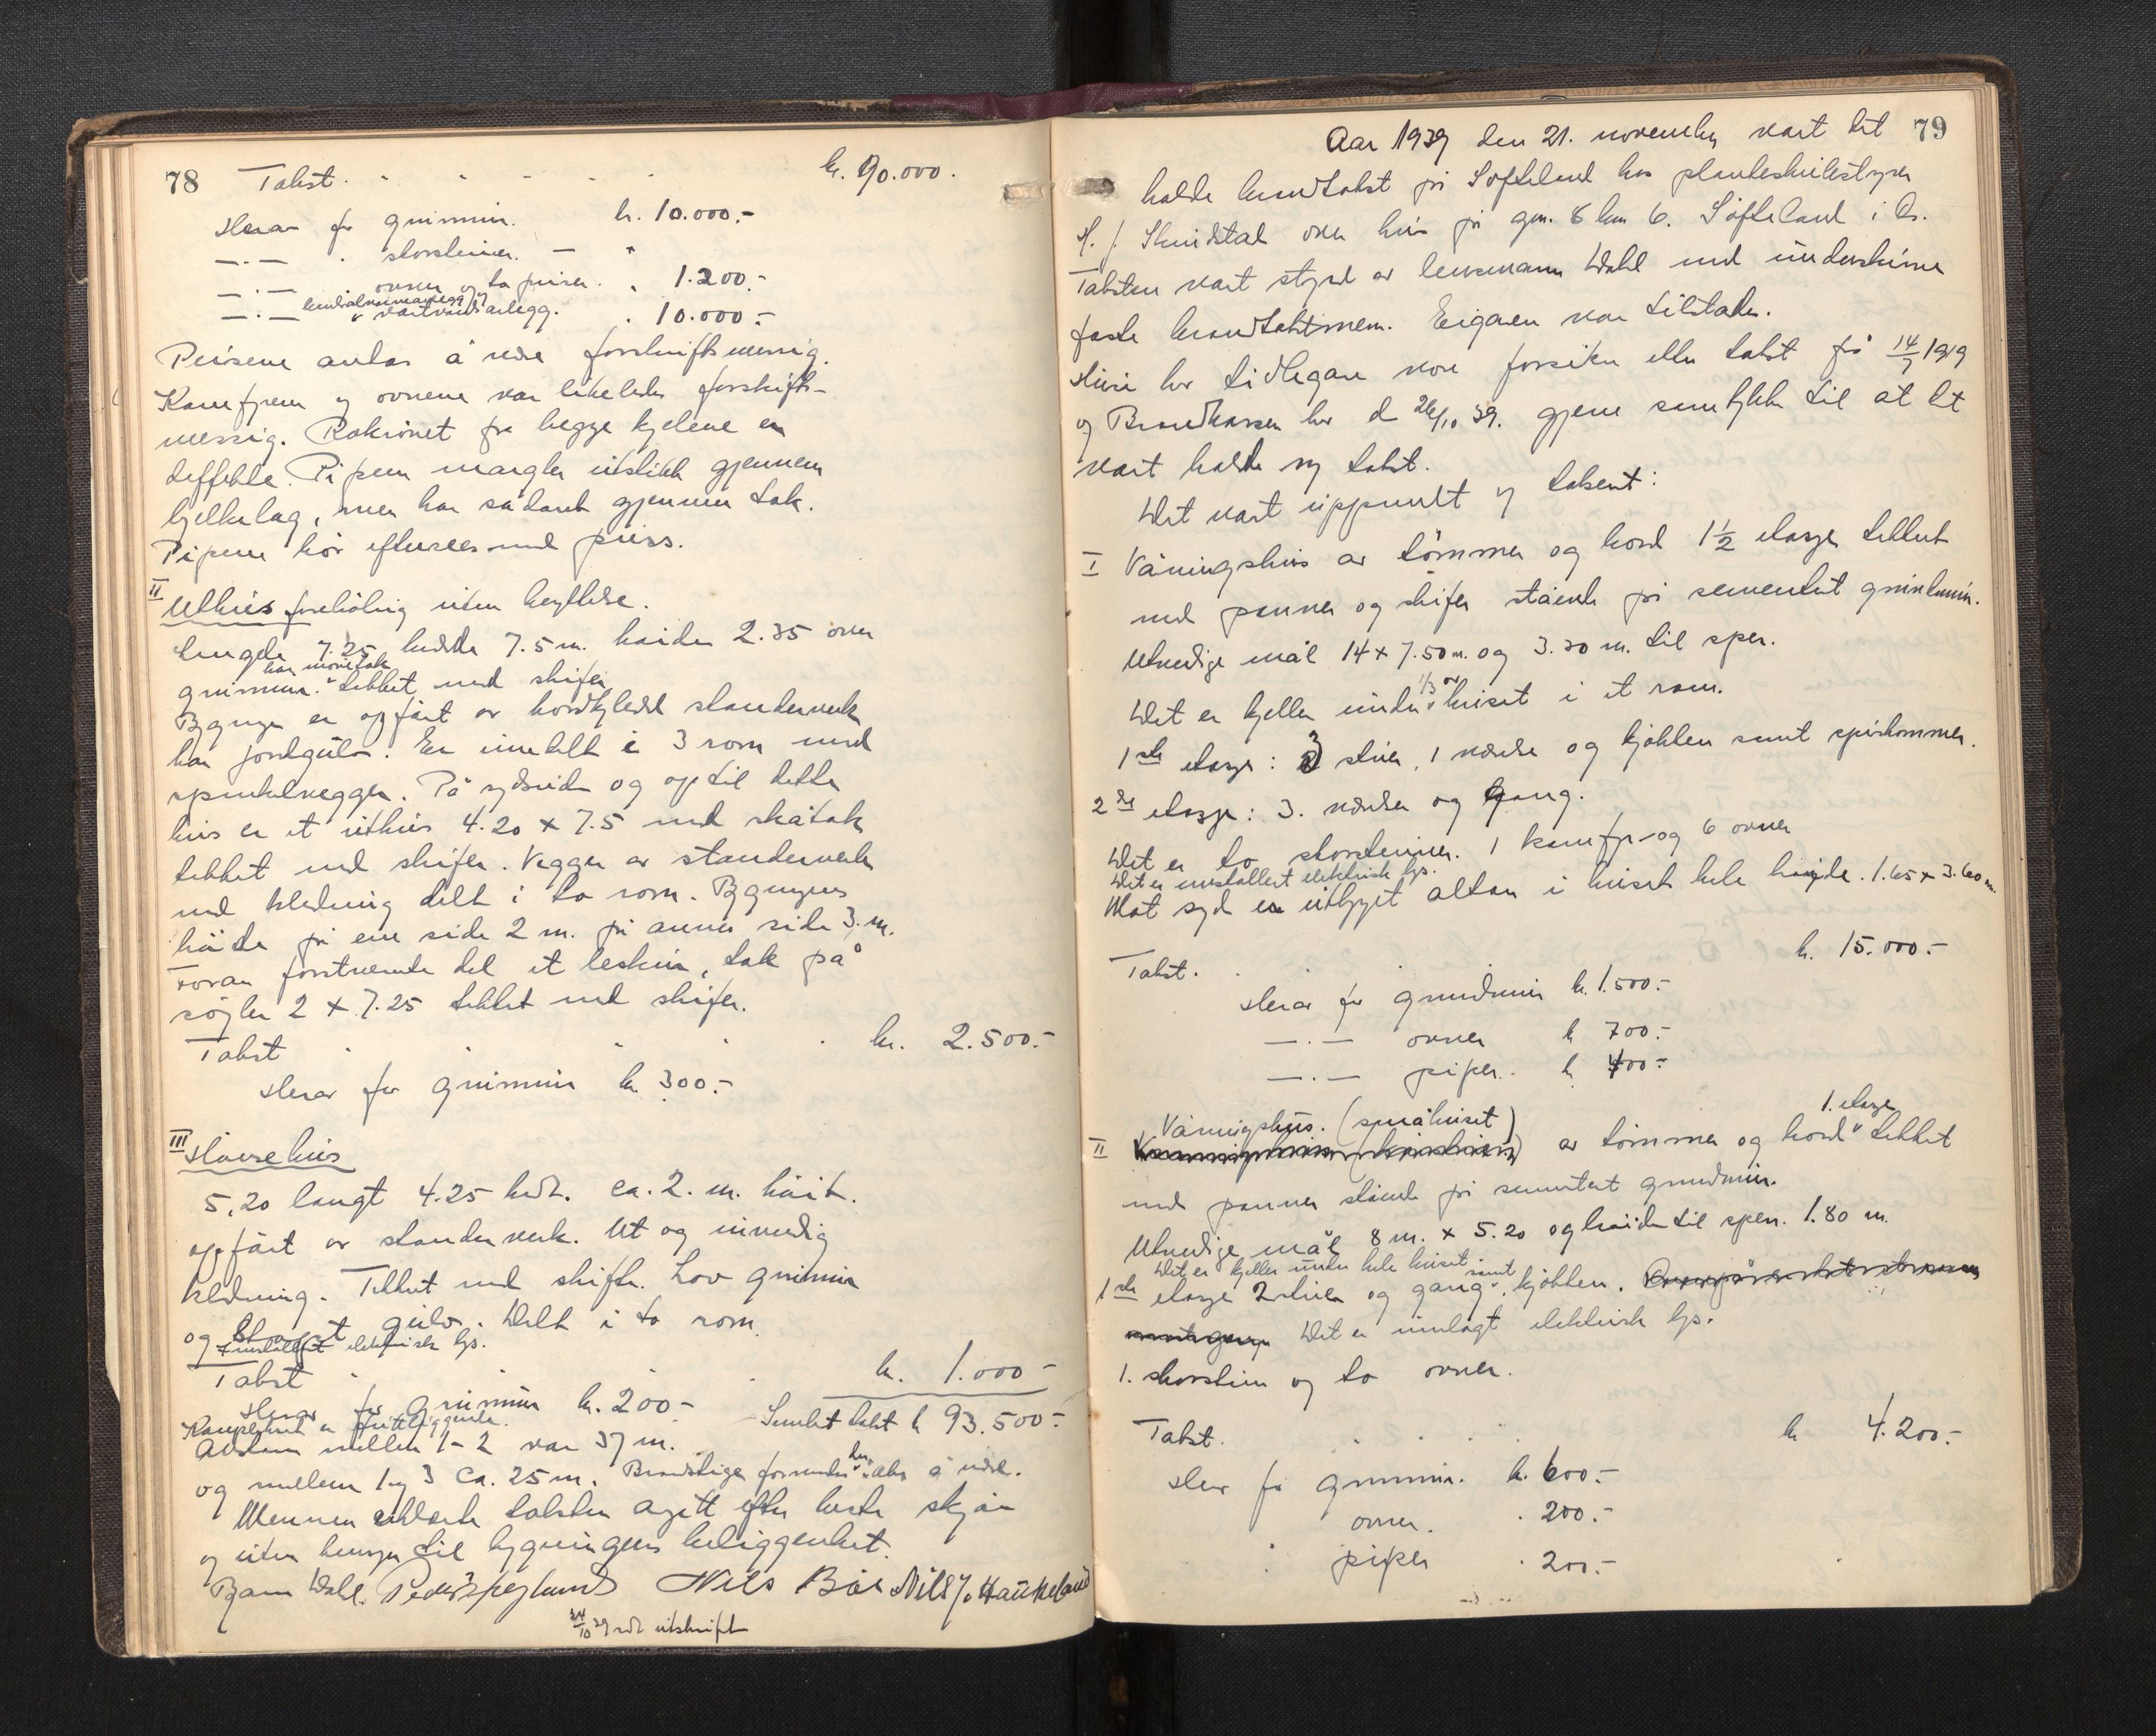 78 Takst . - - - - - kr. 90.000.
Herav for grunnmur. kr. 10.000.-
— . — . skorsteiner. — "
— . — ovner og to peiser. . 1.200.-
sentralvarmeanlegg og
— . — vartvandsanlegg. . 10.000.-
Peisene antas å være forskriftsmessig.
Komfyren og ovnene var likeledes forskrifts-
messig. Røkrøret fra begge kjelene er
deffekte. Pipen mangler utstikk gjennem
bjelkelag, men har sådant gjennem tak.
Pipene bör eftersees med puss.
II
Uthus forhölvig uten kjyllere.
Lengde 7.25 bredde 7.5 m. höide 2.35 over
har mönetak
grunnmur. tekket med skifer
Bygnyn er opfört av bordkledd standerverk
har jordgulv. Er inndelt i 3 rom med
spinkelvegger. På sydsiden og op til dette
hus er et uthus 4.20 x 7.5 med skåtak
tekket med skifer. Vegger av standerverk
med kledning delt i to rom. Bygnynens
höide på ene side 2 m. på annen side 3. m.
Foran forstnevnte del et leskur, tak på
söyler 2 x 7.25 tekket med skifer.
Takst . . . . kr. 2.500.-
Herav for grunnmur kr. 300.-
III
Hönsehus
5.20 langt 4.25 bredt. ca. 2. m. höit.
opfört av standerverk. Ut og innvendig
kledning. Tekket med skifer. Lav grunnmur
og støpt gulv. Delt i to rom.
Installert elektrisk lys.
Takst . . kr. 1.000-
Herav for grunnmur kr. 200- Samlet takst kr 93.500.-
Komplekset er frittliggende.
Avstan mellem 1-2 var 37 m.
og mellem 1 og 3 ca. 25 m. Brandslige formenes her ikke å være.
Mennene erklærte taksten avgitt efter beste skjön
og uten hensyn til bygningens beliggenhet.
Bjarn Dahl. Peder Røylund Nils Böe Nils J. Haukeland
24/10 39 sdt utskrift
79
Aar 1939 den 21. november vart det
halde brandtakst på Søfteland hos planteskulestyrar
H. J. Skeidstal over hus på gnr. 8 bnr 6. Søfteland i Os.
Taksten vart styrd av lensmann Dahl med underskrivne
faste brandtakstmenn. Eigaren var tilstades.
Huse har tidlegare vore forsikra etter takst frå 14/7 1919
og Brandkassen har d 26/10 39. gjeve samtykke til at det
vart halde ny takst.
Det vart uppmælt og taksert:
I Våningshus av tömmer og bord 1½ etasje tekket
med panner og skifer stående på sementert grunnmur.
Utvendige mål 14 x 7.50 m. og 3.30 m. til sper.
Det er kjeller under 1/3 av huset i et rom.
1ste etasje: 3 stuer, 1 værelse og kjökken samt spiskammer.
2de etasje: 3. værelser og gang.
Det er to skorsteiner. 1 komfyr og 6 ovner
Det er installert elektrisk lys.
Mot syd er utbygget altan i husets hele höyde. 1.65 x 3.60 m.
Takst. . . kr. 15.000.-
Herav for grundmur kr. 1.500.-
— . — ovner kr 700.-
— . — piper. kr 400.-
Våningshus. (småhuset) 1. etasje
II av tömmer og bord tekket
med panner stående på sementert grundmur.
Utvendige mål 8 m. x 5.20 og höide til sper. 1.80 m.
Det er kjeller under hele huset samt
1ste etasje 2 stuer og gang, kjökken.
Det er innlagt elektrisk lys.
1. skorstein og to ovner.
Takst. . . . . kr 4.200.-
Herav for grunnmur. kr. 600.-
ovner. . 200.-
. piper . 200.-